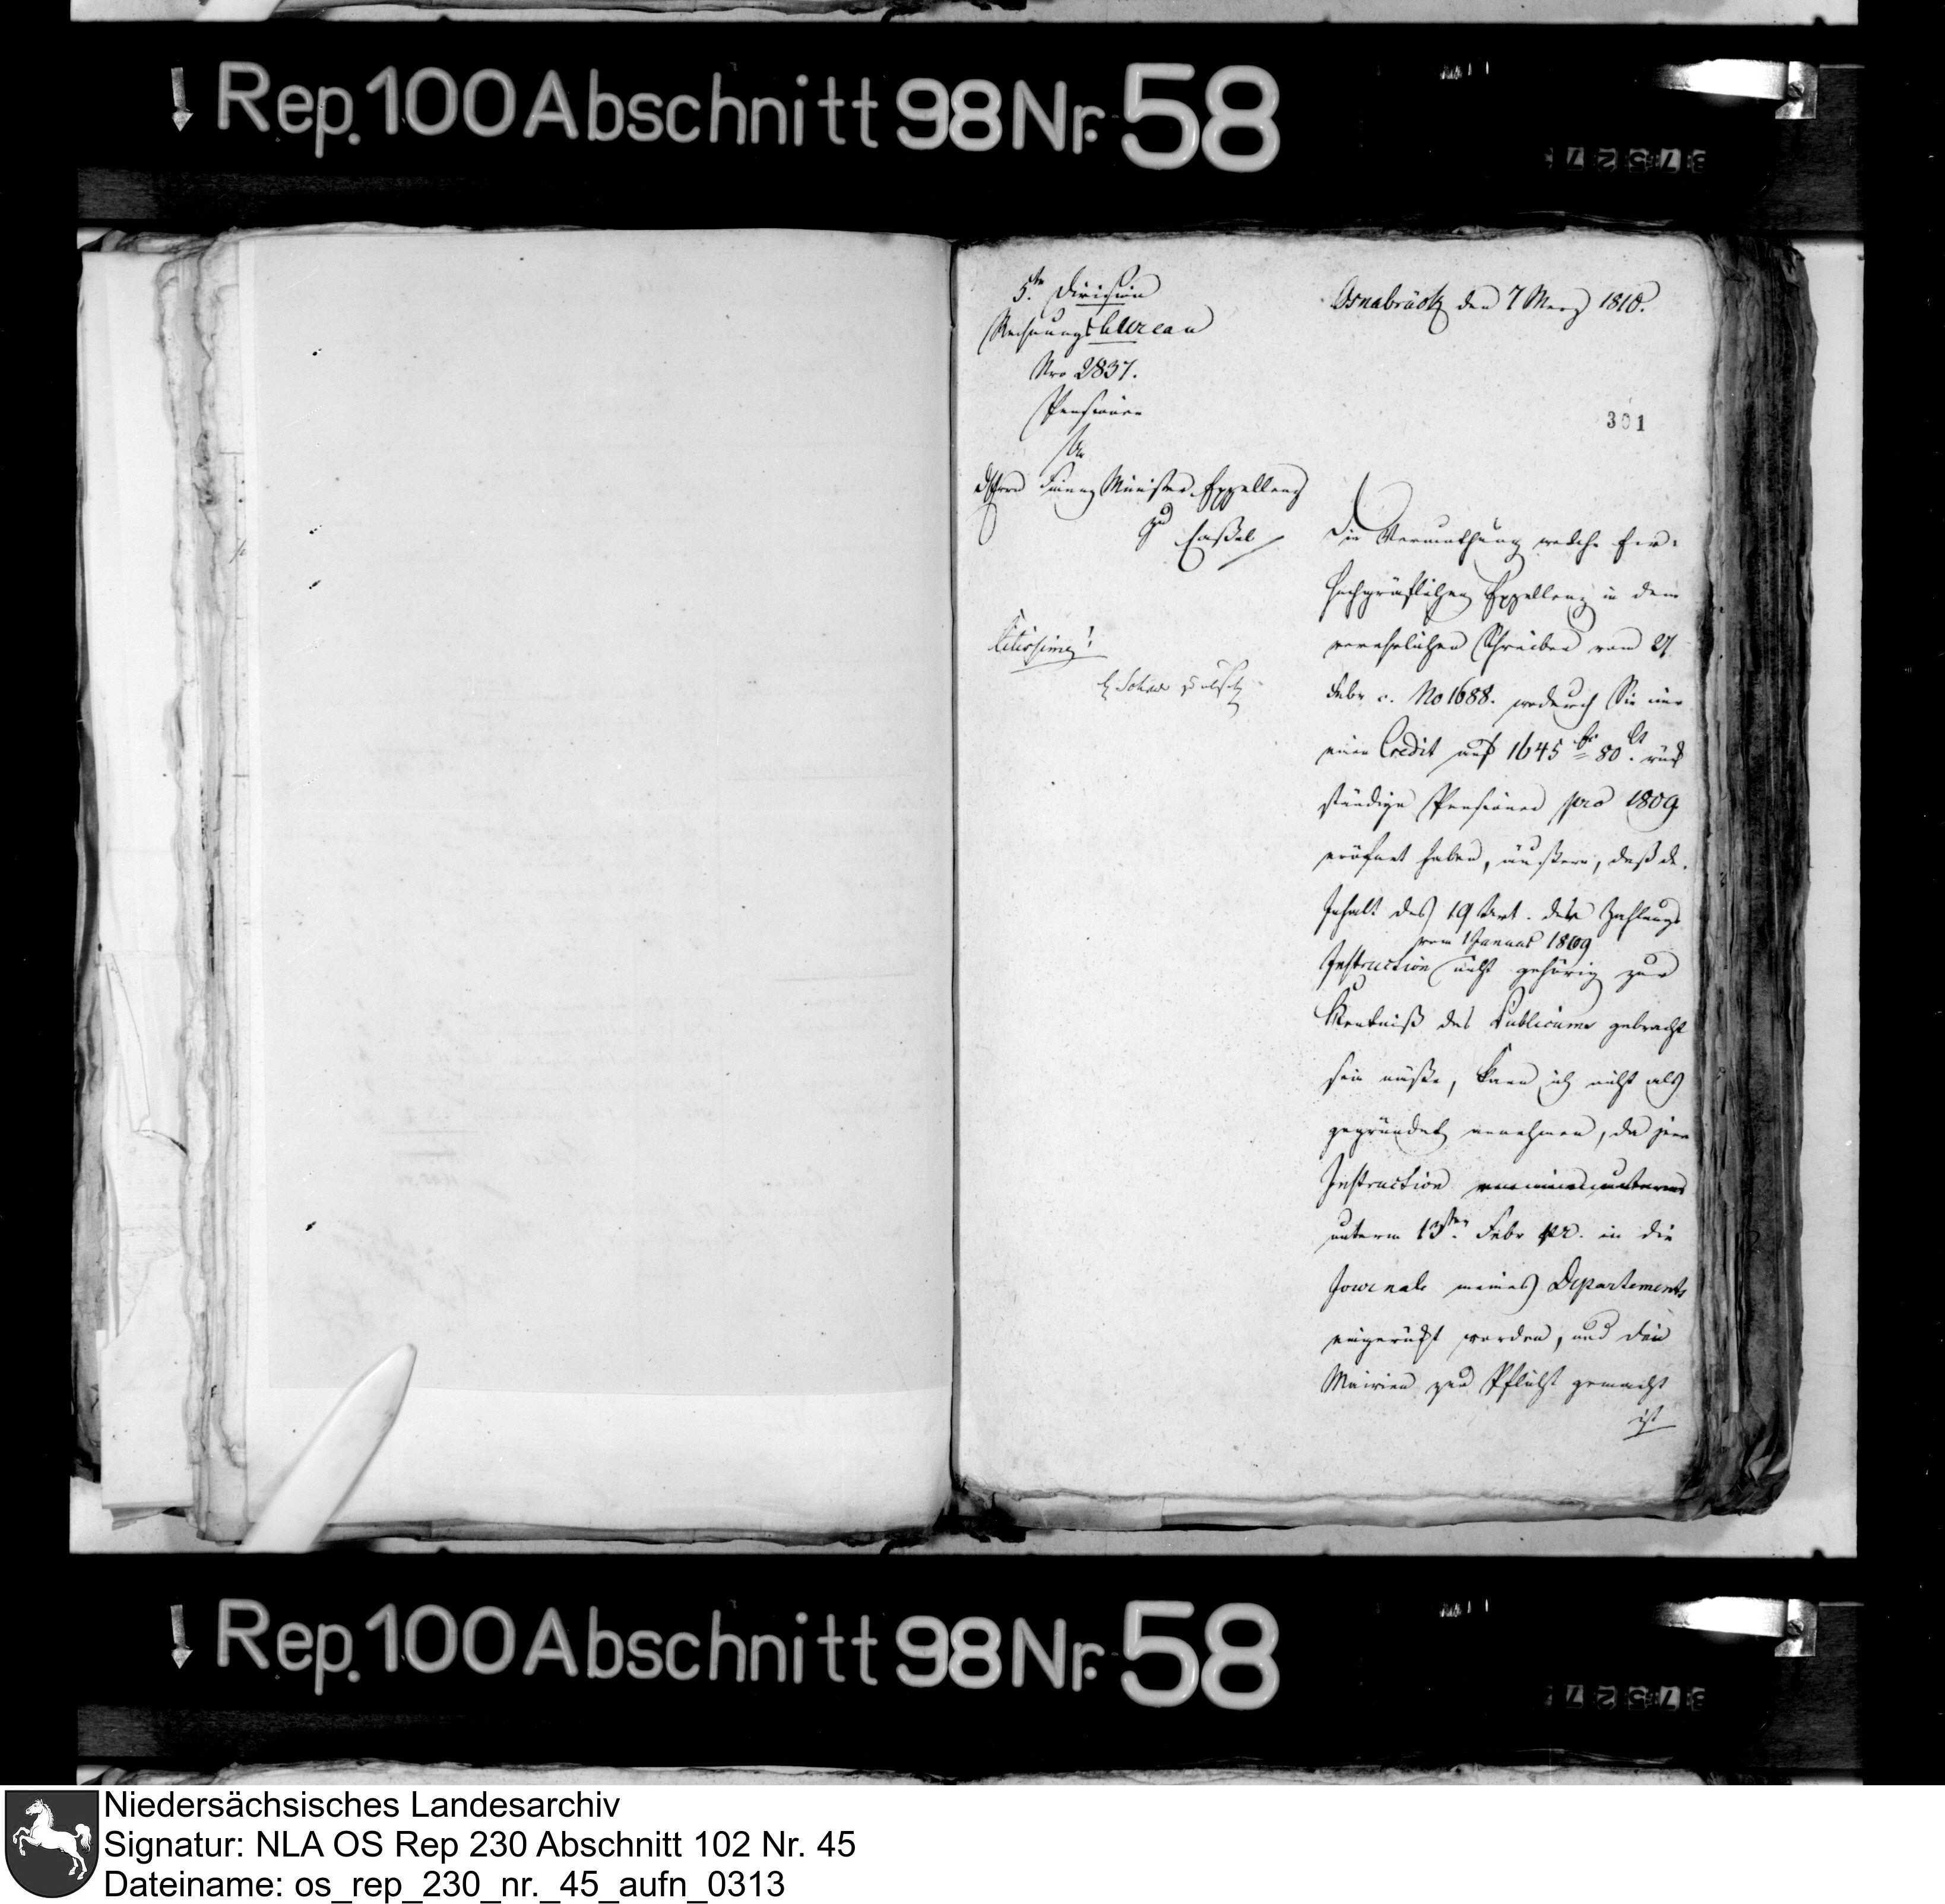 Rep. 100 Abschnitt 98 Nr. 58
5te Division
Rechnungsbureau
Nro 2837.
Pensionen
An
des Herrn Finanz Minister Exzellenz
zu Caßel
Citissime!
Osnabrück den 7 Merz 1810.
301
Die Vermuthung welche Ew.
Hochgräflichen Exzellenz in dem
verehrlichen Schreiben vom 21
Febr c. No 1688. wodurch Sie mir
einen Credit auf 1645 fr 80 Ct. rück
ständige Pensionen pro 1809
eröfnet haben, äußern, daß der
Inhalt des 19 Art. der Zahlungs
vom 1 Januar 1809
Instruction nicht gehörig zur
Kentniß des Publicums gebracht
sein müße, kann ich nicht als
gegründet annehmen, da jene
Instruction
unterm 13ten Febr pr. in die
Journale meines Departements
eingerückt worden, und den
Mairien zur Pflicht gemacht
ist
Rep. 100 Abschnitt 98 Nr. 58
Niedersächsisches Landesarchiv
Signatur: NLA OS Rep 230 Abschnitt 102 Nr. 45
Dateiname: os_rep_230_nr._45_aufn_0313